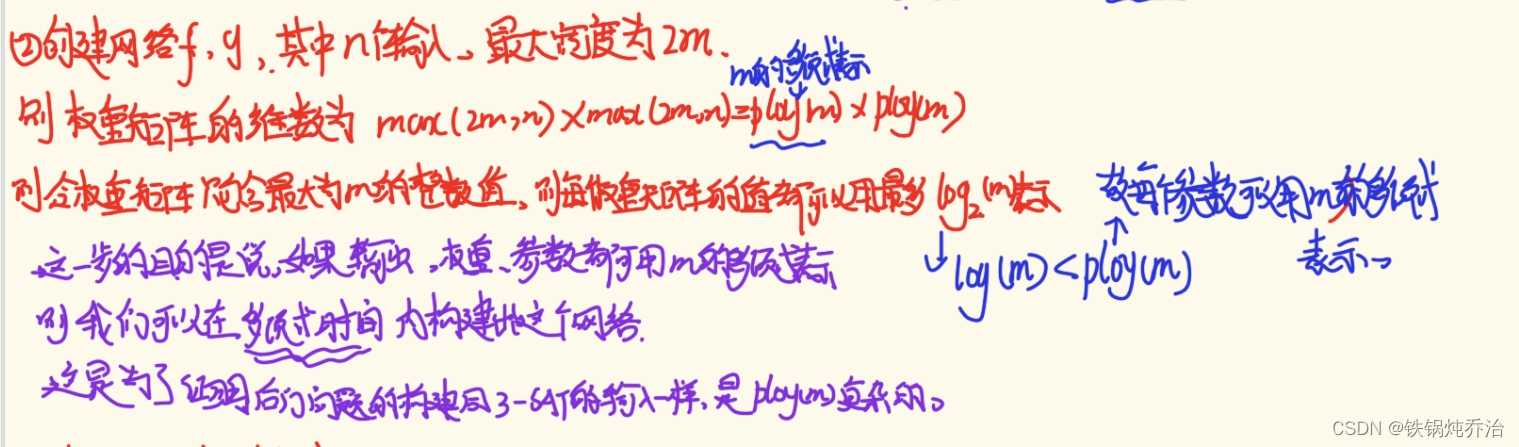 ②创建网络f,g,其中n个输入、最大宽度为2m.
m的多项式表示
则 权重矩阵的维数为 max(2m,n)×max(2m,n)=ploy(m)×ploy(m)
则令权重矩阵 最大为m的整数值,则每个权重矩阵的值都可以用最多log₂(m)表示 故每个参数可以用m的多项式
表示、
↓ log(m)<ploy(m) ↑
这一步的目的是说,如果输出,权重、参数都可用m的多项式表示
则我们可以在多项式时间内构建出这个网络.
这是为了证明后门问题的构建同3-SAT的输入一样,是ploy(m)复杂的。
CSDN @铁锅炖乔治